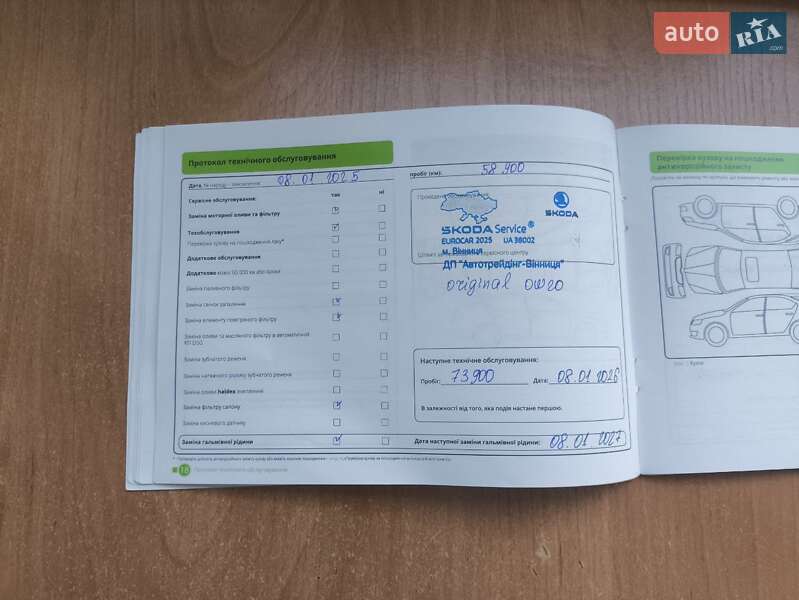 auto RIA.com
Протокол технічного обслуговування
Дата, 08.01 2025
пробіг (км): 58 900
Сервісне обслуговування:
так
ні
Заміна моторної оливи та фільтру
Техобслуговування
Перевірка кузову на пошкодження лку*
Додаткове обслуговування
Додатково кожні
Заміна паливного фільтру
Заміна свічок запалення
Заміна елементу повітряного фільтру
Заміна оливи та масляного фільтру в автоматичній
КП DSG
Заміна зубчатого ременя
Заміна натяжного ролику зубчатого ременя
Заміна оливи haldex
Заміна фільтру салону
Заміна кисневого датчику
Заміна гальмівної рідини
ŠKODA Service®
ŠKODA
EUROCAR 2025 UA 38002
м. Вінниця
ДП "Автотрейдінг-Вінниця"
original 0W20
Наступне технічне обслуговування:
Пробіг: 73 900 Дата: 08.01 2026
В залежності від того, яка подія настане першою.
Дата наступної заміни гальмівної рідини: 08.01 2027
18 Протокол технічного обслуговування
Перевірка кузову на пошкодження
антикорозійного захисту